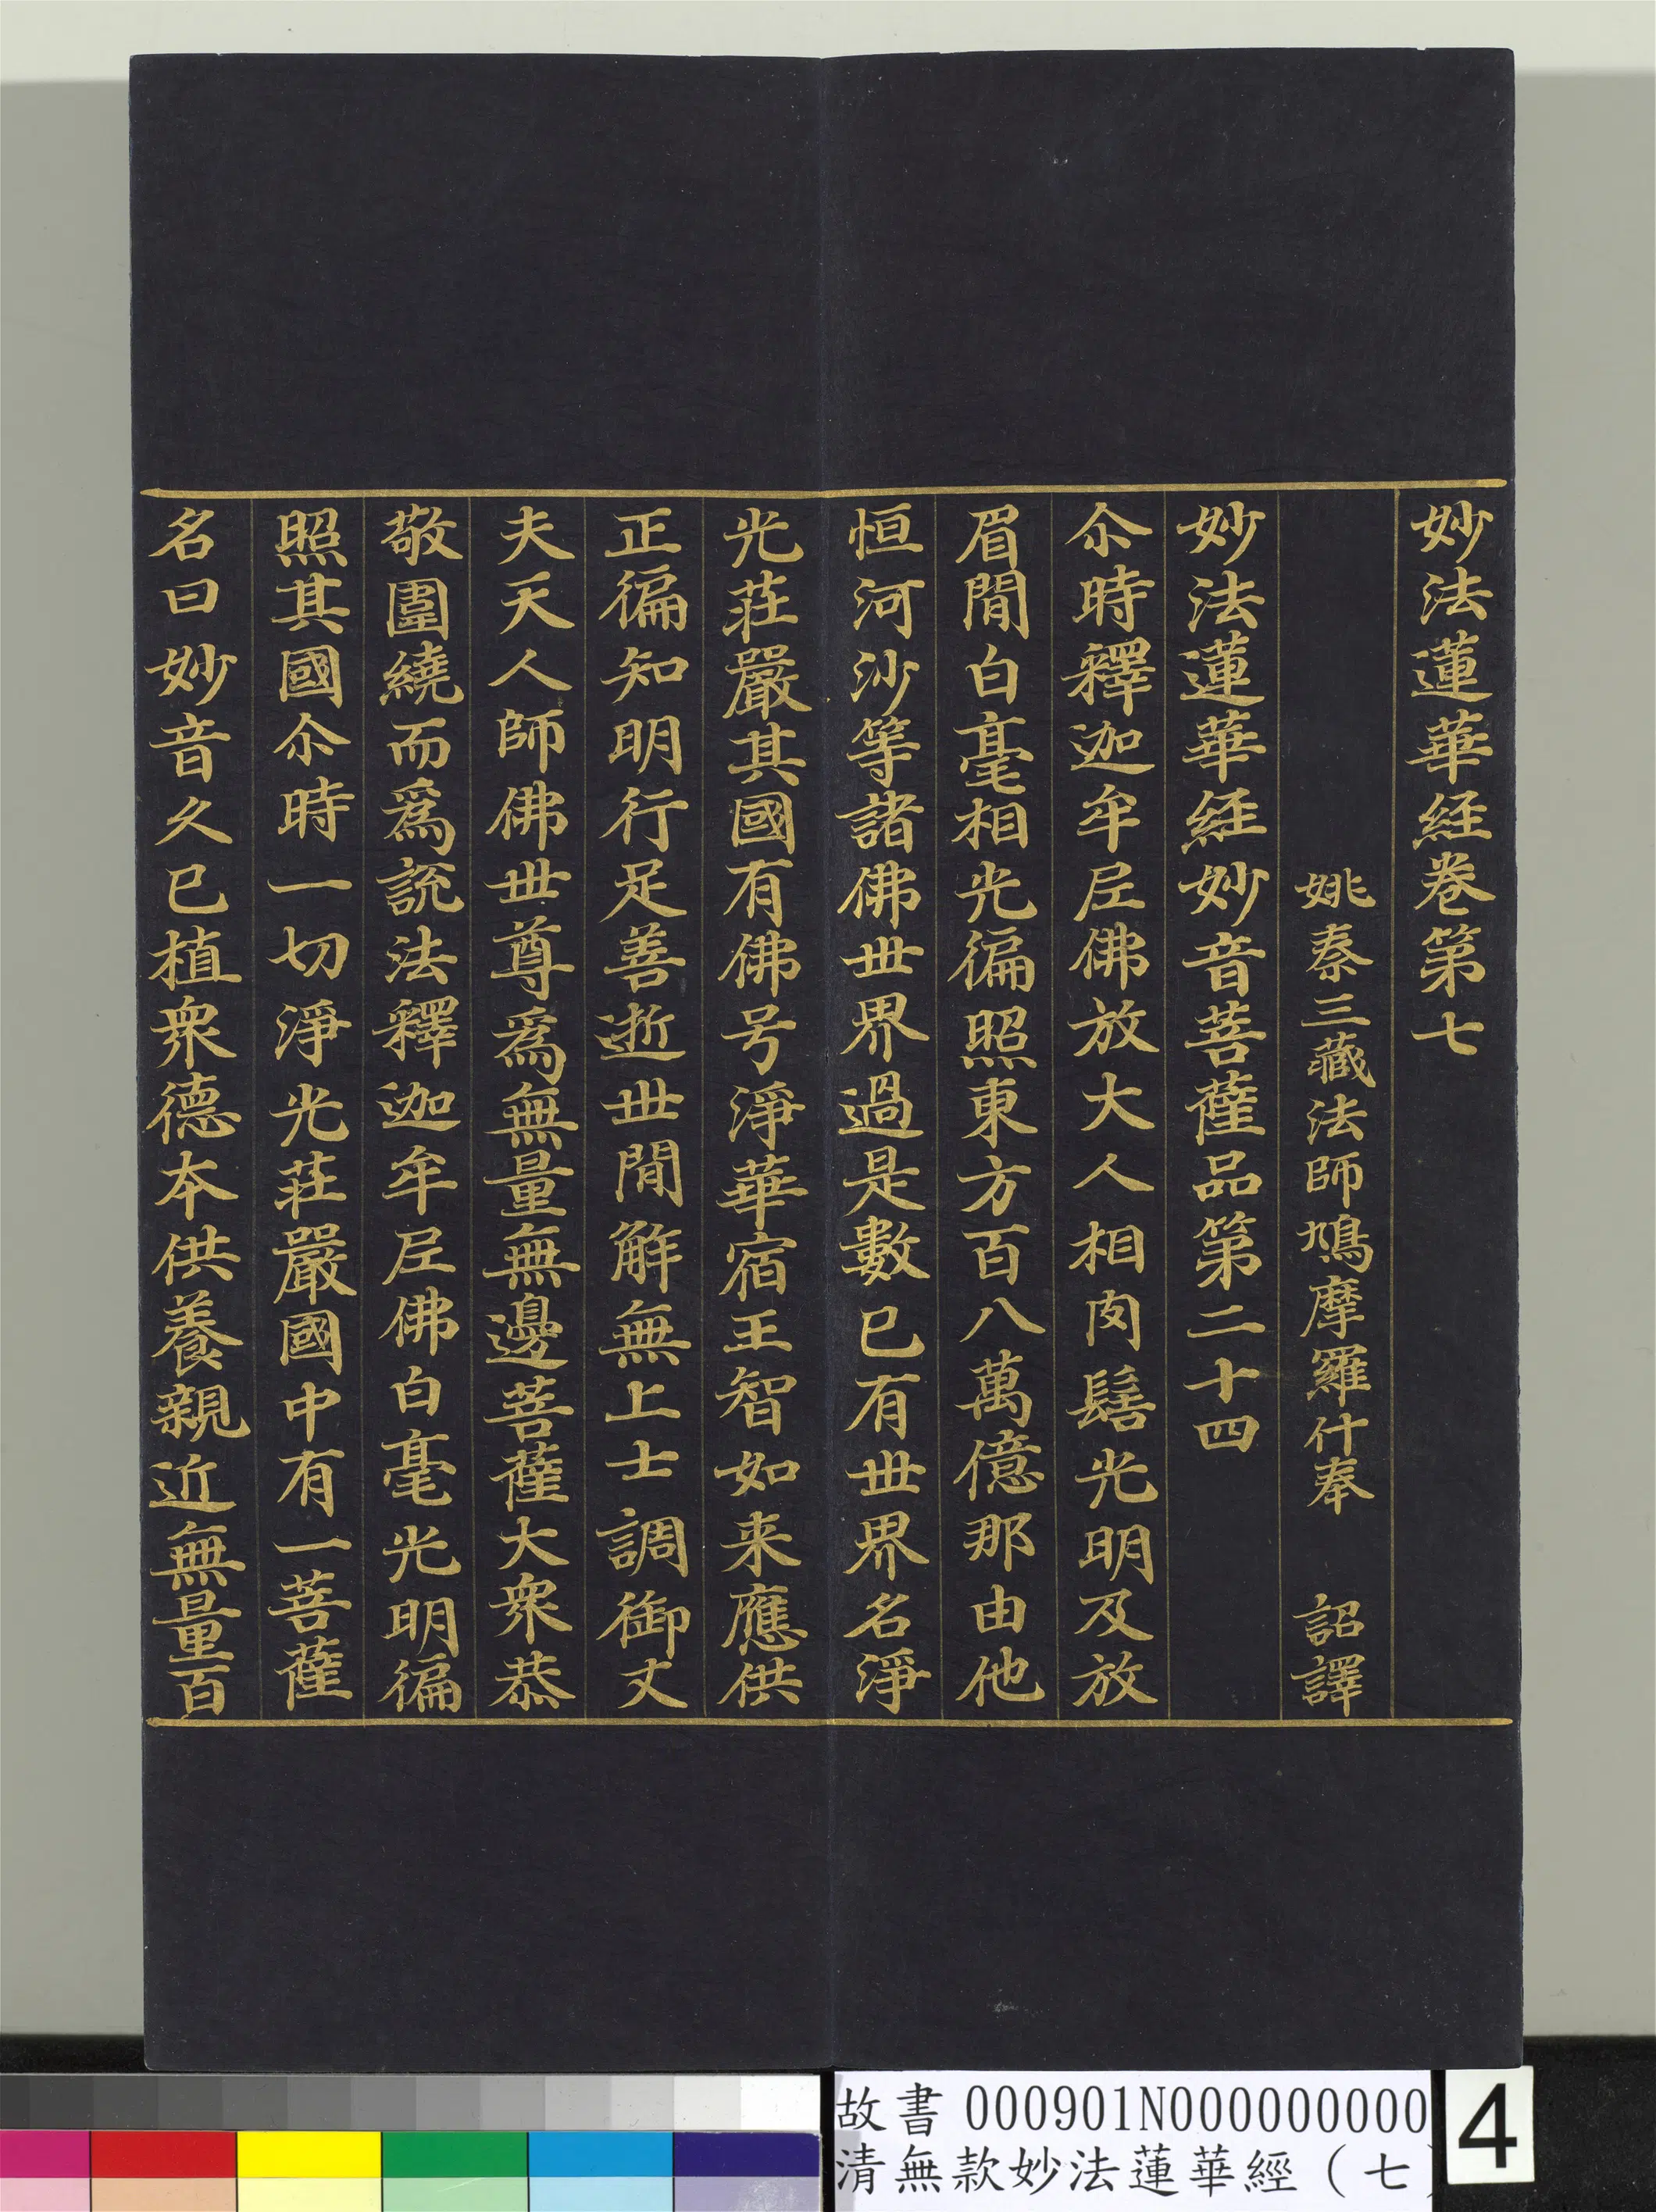 妙法蓮華經卷第七
姚秦三藏法師鳩摩羅什奉　詔譯
妙法蓮華經妙音菩薩品第二十四
尒時釋迦牟尼佛放大人相肉髻光明及放
眉間白毫相光徧照東方百八萬億那由他
恒河沙等諸佛世界過是數已有世界名淨
光莊嚴其國有佛号淨華宿王智如来應供
正徧知明行足善逝世間解無上士調御丈
夫天人師佛世尊爲無量無邊菩薩大衆恭
敬圍繞而爲說法釋迦牟尼佛白毫光明徧
照其國尒時一切淨光莊嚴國中有一菩薩
名曰妙音久已植衆德本供養親近無量百
故書 000901N000000000
清無款妙法蓮華經（七
4